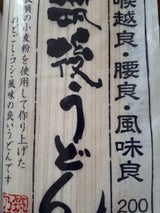 喉越良・腰良・風味良
200
筑後うどん
の小麦粉を使用して作り上げた
のどごし・コシ・風味の良いうどんです